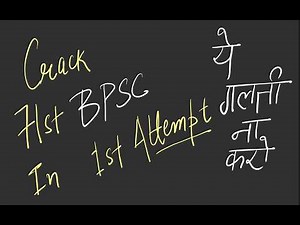 Crack
71st BPSC
In 1st Attempt
ये
गलती
ना
करो